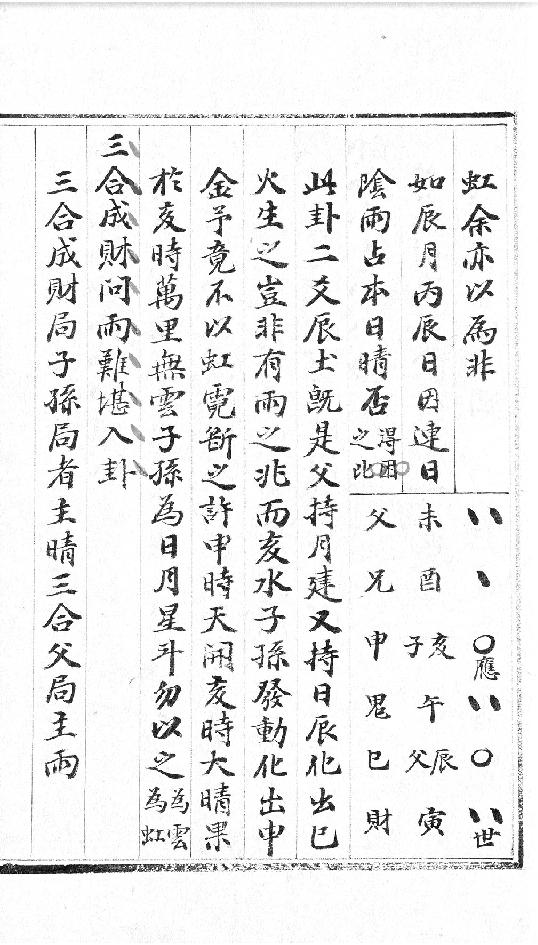 虹余亦以為非
如辰月丙辰日因連日
陰雨占本日晴否得困之比
〃 、 〇應 〃 〇 〃世
未 酉 亥子 午 辰父 寅
父 兄 申 鬼 巳 財
此卦二爻辰土旣是父持月建又持日辰化出巳
火生之豈非有雨之兆而亥水子孫發動化出申
金予竟不以虹霓斷之許申時天開亥時大晴果
於亥時萬里無雲子孫為日月星斗勿以之為雲為虹
三合成財問雨難堪入卦
三合成財局子孫局者主晴三合父局主雨